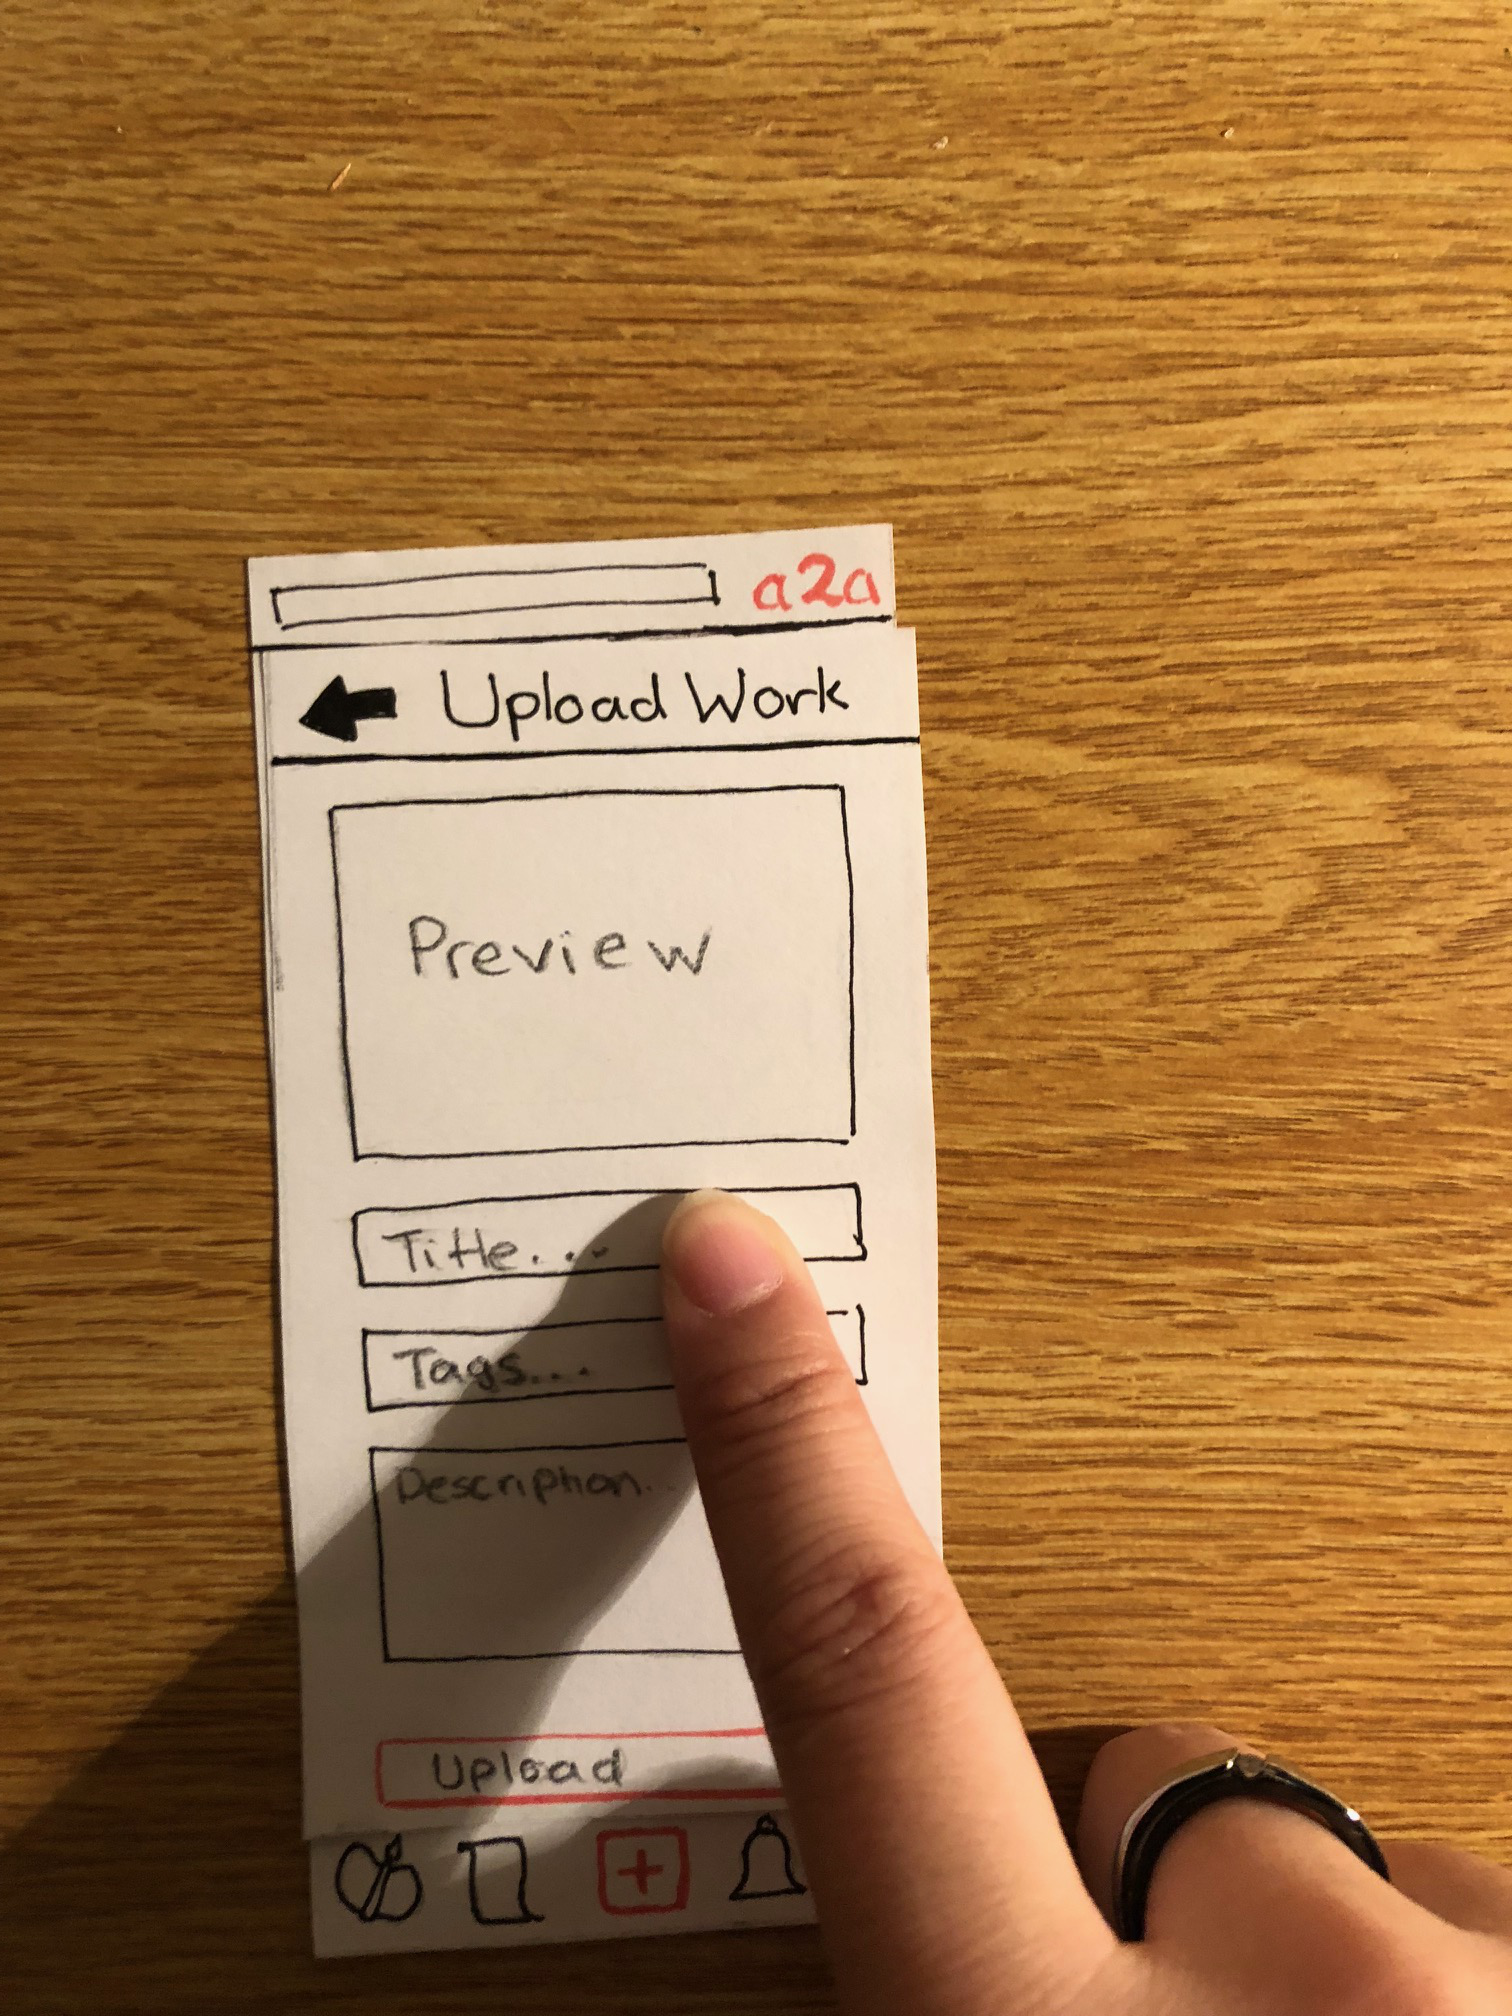 a2a
Upload Work
Preview
Title...
Tags...
Description...
Upload